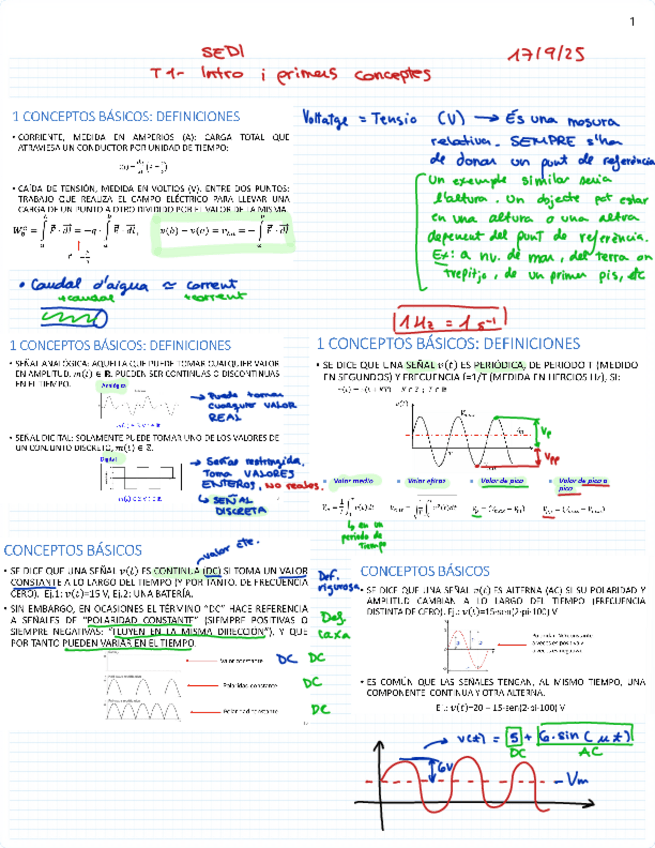 1
SEDI
17/9/25
T1- Intro i primers conceptes
1 CONCEPTOS BÁSICOS: DEFINICIONES
• CORRIENTE, MEDIDA EN AMPERIOS (A): CARGA TOTAL QUE
ATRAVIESA UN CONDUCTOR POR UNIDAD DE TIEMPO:
• CAÍDA DE TENSIÓN, MEDIDA EN VOLTIOS (V). ENTRE DOS PUNTOS:
TRABAJO QUE REALIZA EL CAMPO ELÉCTRICO PARA LLEVAR UNA
CARGA DE UN PUNTO A OTRO DIVIDIDO POR EL VALOR DE LA MISMA
• Caudal d'aigua ≈ corrent
+caudal +corrent
Voltatge = Tensio (V) → És una mesura
relativa. SEMPRE s'ha
de donar un punt de referència
Un exemple similar seria
l'altura. Un objecte pot estar
en una altura o una altra
depenent del punt de referència.
Ex: a nv. de mar, del terra on
trepitjo, de un primer pis, etc
1 Hz = 1 s⁻¹
1 CONCEPTOS BÁSICOS: DEFINICIONES
• SEÑAL ANALÓGICA: AQUELLA QUE PUEDE TOMAR CUALQUIER VALOR
EN AMPLITUD. m(t) ∈ ℝ. PUEDEN SER CONTINUAS O DISCONTINUAS
EN EL TIEMPO.
Analógica
→ Puede tomar
cualquier VALOR
REAL
• SEÑAL DIGITAL: SOLAMENTE PUEDE TOMAR UNO DE LOS VALORES DE
UN CONJUNTO DISCRETO, m(t) ∈ ℤ.
Digital
→ Señal restringida,
Toma VALORES
ENTEROS, NO reales.
↳ SEÑAL
DISCRETA
1 CONCEPTOS BÁSICOS: DEFINICIONES
• SE DICE QUE UNA SEÑAL v(t) ES PERIÓDICA, DE PERIODO T (MEDIDO
EN SEGUNDOS) Y FRECUENCIA f=1/T (MEDIDA EN HERCIOS Hz), SI:
Vp
Vpp
Valor medio
Valor eficaz
Valor de pico
Valor de pico a
pico
↳ en un
periodo de
tiempo
CONCEPTOS BÁSICOS
valor cte.
• SE DICE QUE UNA SEÑAL v(t) ES CONTINUA (DC) SI TOMA UN VALOR
CONSTANTE A LO LARGO DEL TIEMPO (Y POR TANTO, DE FRECUENCIA
CERO). Ej.1: v(t)=15 V, Ej.2: UNA BATERÍA.
Def.
rigurosa
• SIN EMBARGO, EN OCASIONES EL TÉRMINO "DC" HACE REFERENCIA
A SEÑALES DE "POLARIDAD CONSTANTE" (SIEMPRE POSITIVAS O
SIEMPRE NEGATIVAS: "FLUYEN EN LA MISMA DIRECCIÓN"), Y QUE
POR TANTO PUEDEN VARIAR EN EL TIEMPO.
Def.
laxa
Valor constante DC DC
Polaridad constante DC
Polaridad constante DC
CONCEPTOS BÁSICOS
• SE DICE QUE UNA SEÑAL v(t) ES ALTERNA (AC) SI SU POLARIDAD Y
AMPLITUD CAMBIAN A LO LARGO DEL TIEMPO (FRECUENCIA
DISTINTA DE CERO). Ej.: v(t)=15·sen(2·pi·100) V
• ES COMÚN QUE LAS SEÑALES TENGAN, AL MISMO TIEMPO, UNA
COMPONENTE CONTINUA Y OTRA ALTERNA.
Ej.: v(t)=20 – 15·sen(2·pi·100) V
v(t) = 5 + 6·sin(ωt)
DC AC
6V
Vm